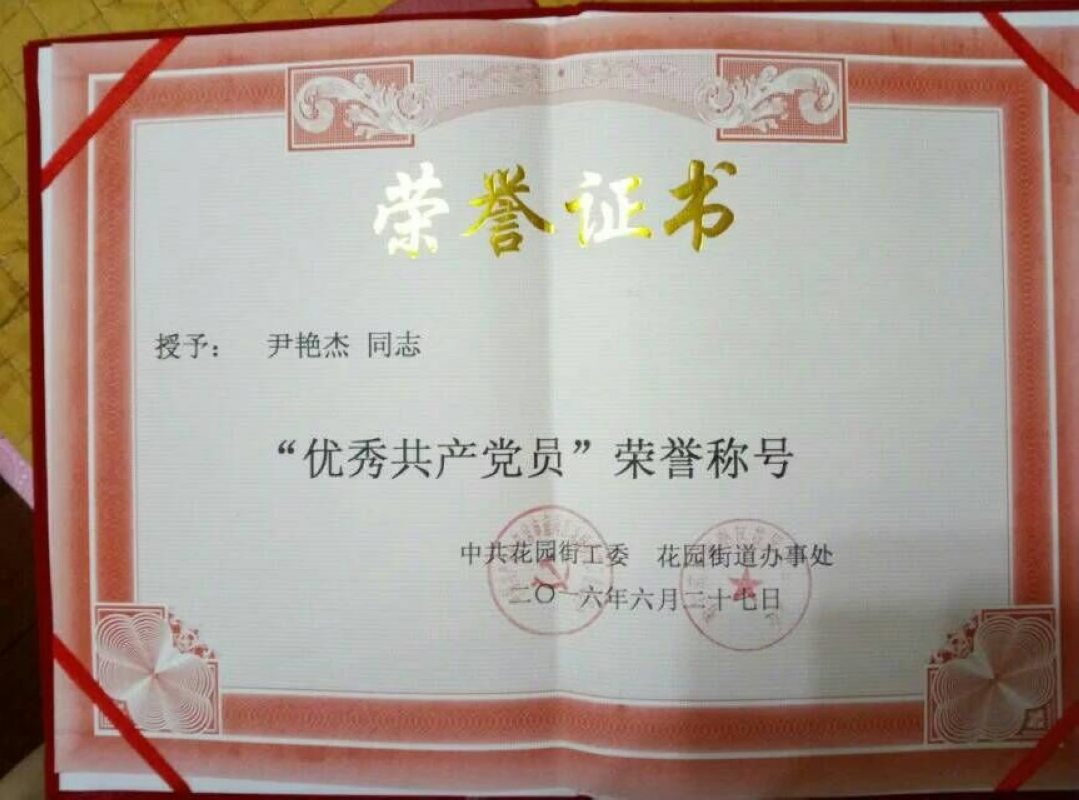 荣誉证书
授予： 尹艳杰 同志
“优秀共产党员”荣誉称号
中共花园街工委 花园街道办事处
二〇一六年六月二十七日